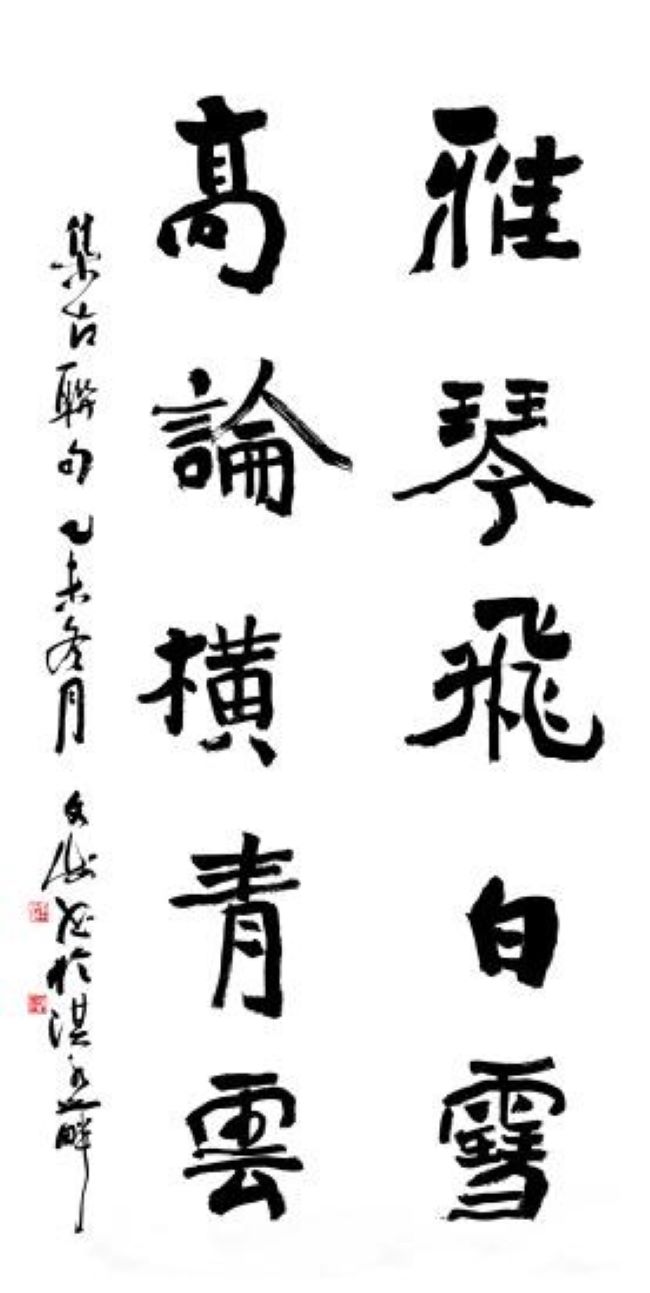 雅琴飛白雪
高論橫青雲
集古聯句乙未冬月文於淇畔